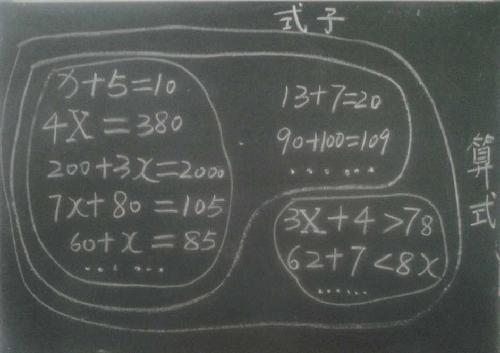 式子
x+5=10
4X=380
200+3x=2000
7x+80=105
60+x=85
……
13+7=20
90+100=109
……
3X+4>78
62+7<8x
……
算式